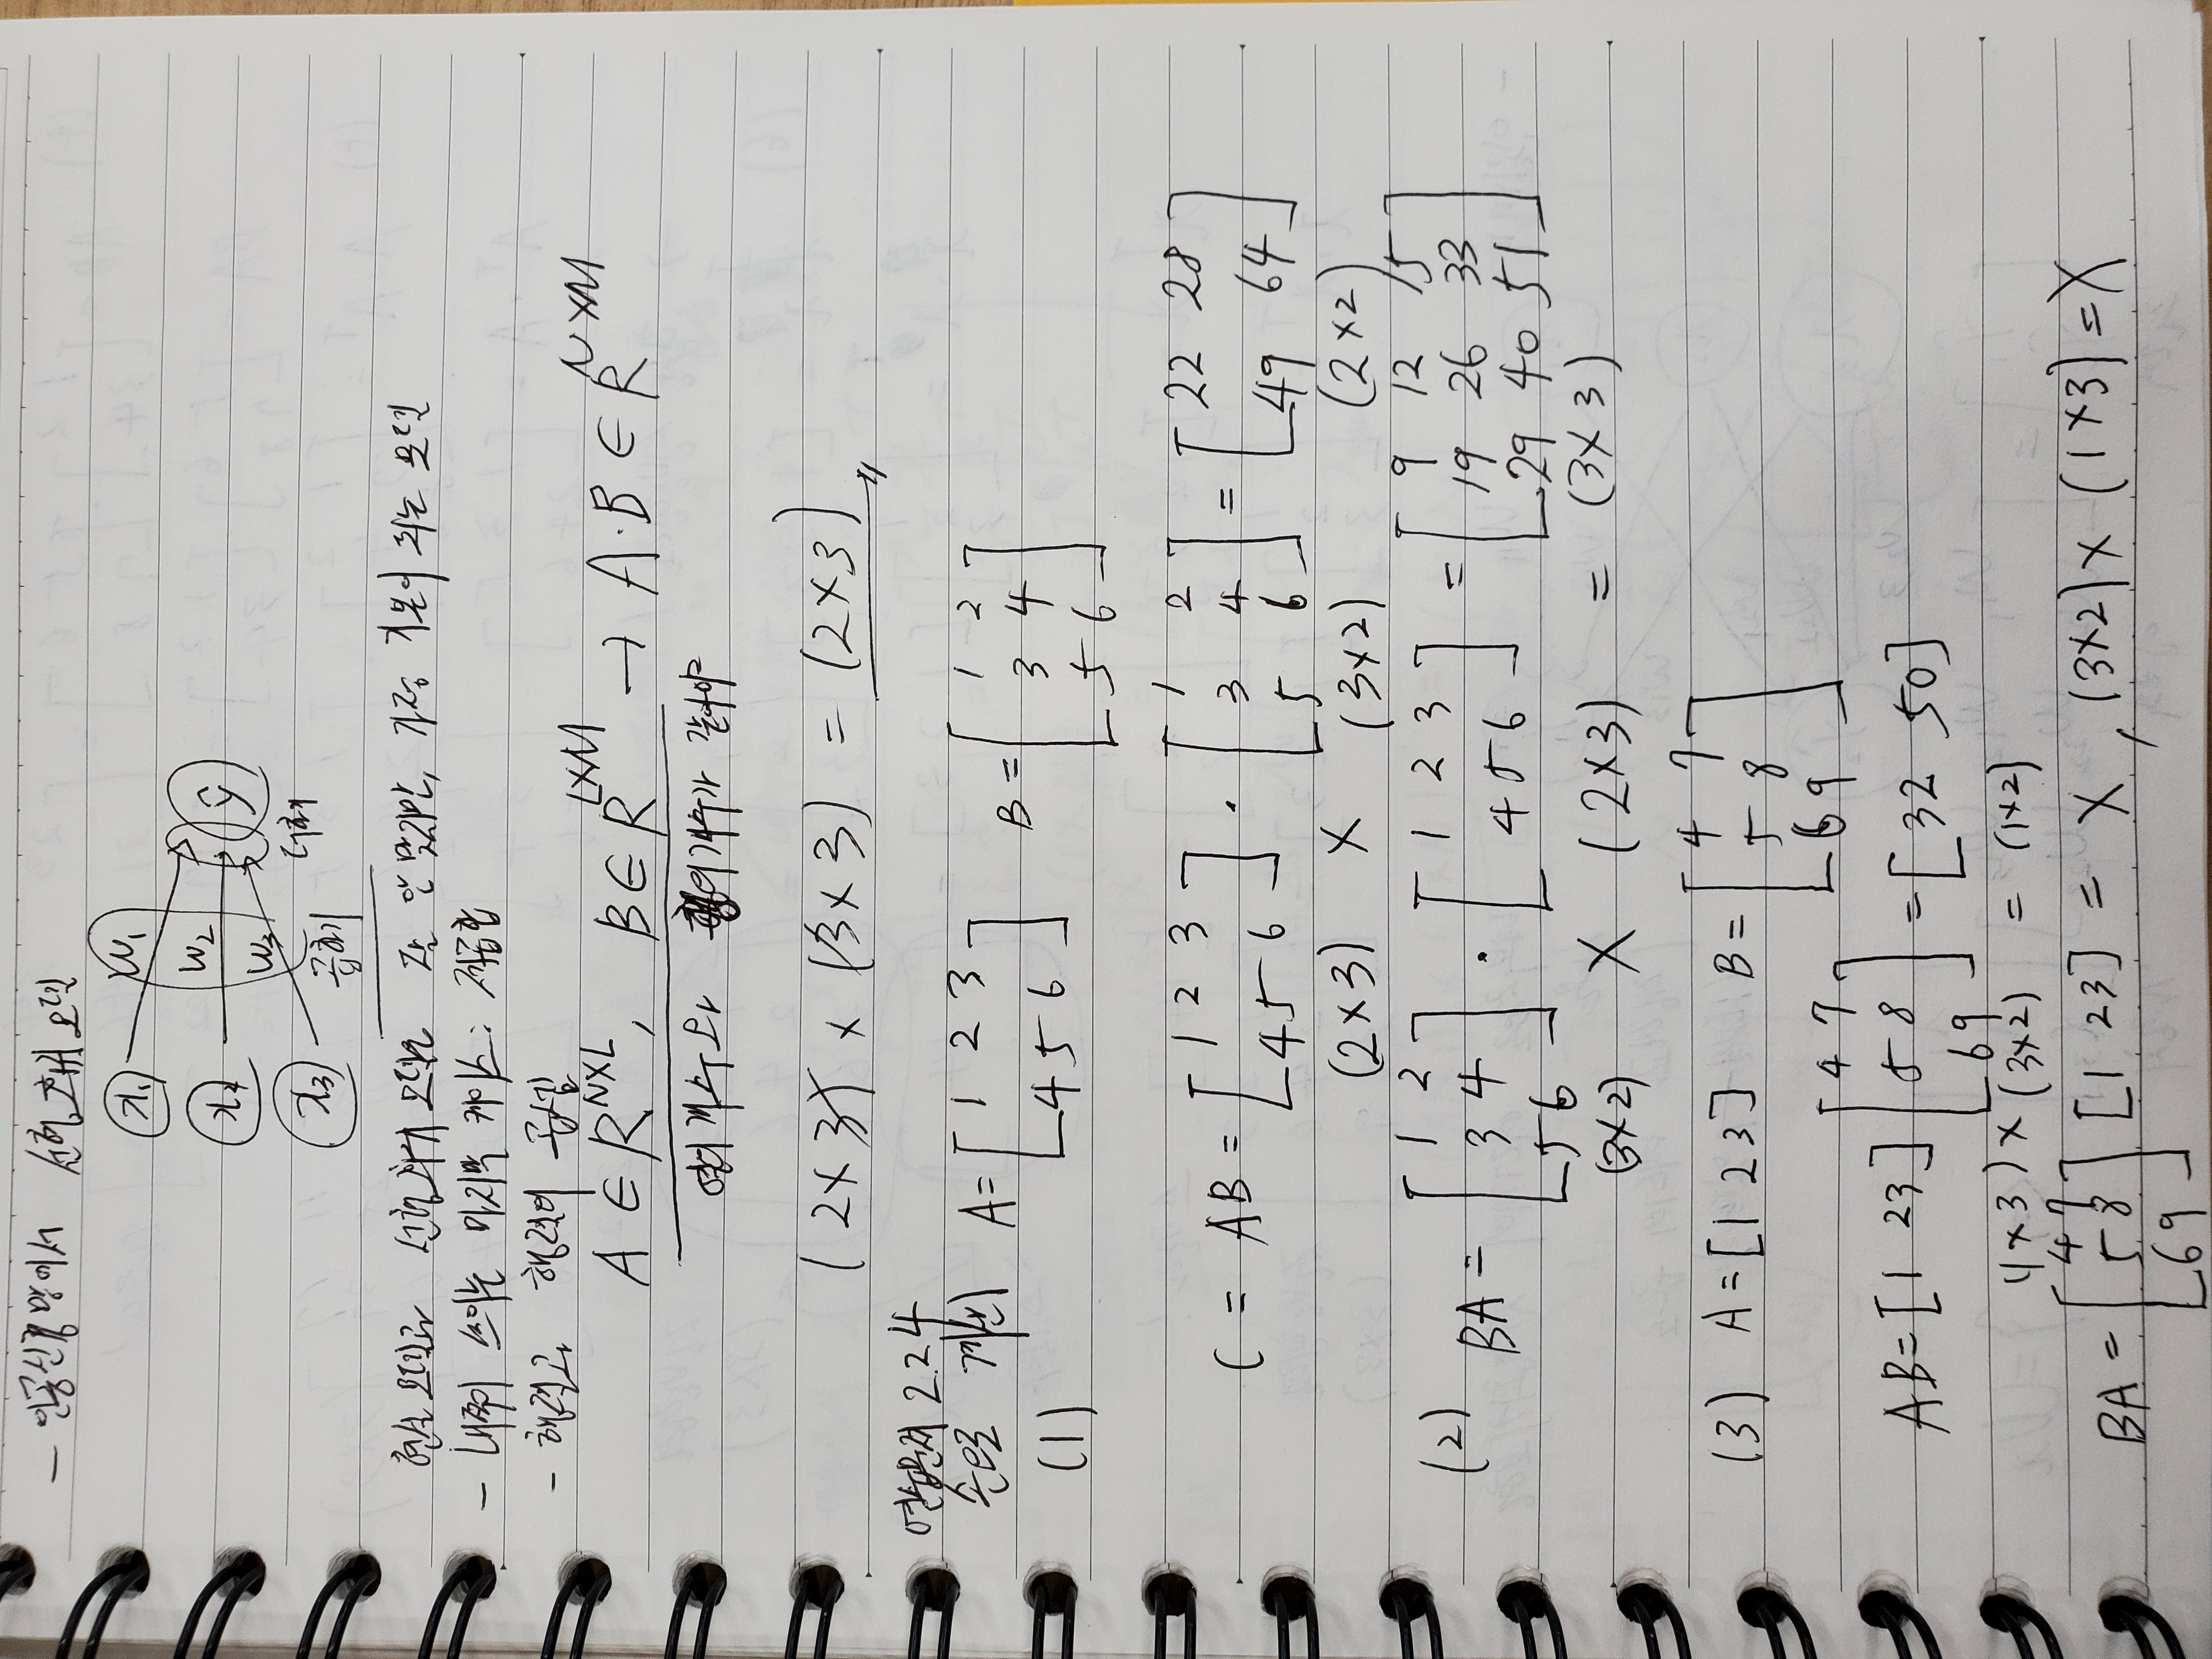 - 인공신경망에서 선형회귀 모델
x₁ w₁
x₂ w₂ ŷ
x₃ w₃ 더하기
곱하기
현실 모델과 선형회귀 모델은 잘 안 맞지만, 가장 기본이 되는 모델
- 내적이 쓰이는 마지막 케이스: 적급합
- 행렬과 행렬의 곱셈
A ∈ R^{N×L}, B ∈ R^{L×M} → A·B ∈ R^{N×M}
열의 개수와 행의 개수가 같아야
(2×3) × (3×3) = (2×3)
연습문제 2.2.4
손으로 계산 A = [1 2 3
4 5 6] B = [1 2
3 4
5 6]
(1)
C = AB = [1 2 3
4 5 6] · [1 2
3 4
5 6] = [22 28
49 64]
(2×3) × (3×2) (2×2)
(2) BA = [1 2
3 4
5 6] · [1 2 3
4 5 6] = [9 12 15
19 26 33
29 40 51]
(3×2) × (2×3) = (3×3)
(3) A = [1 2 3] B = [4 7
5 8
6 9]
AB = [1 2 3] [4 7
5 8
6 9] = [32 50]
(1×3) × (3×2) = (1×2)
BA = [4 7
5 8
6 9] [1 2 3] = X, (3×2) × (1×3) = X